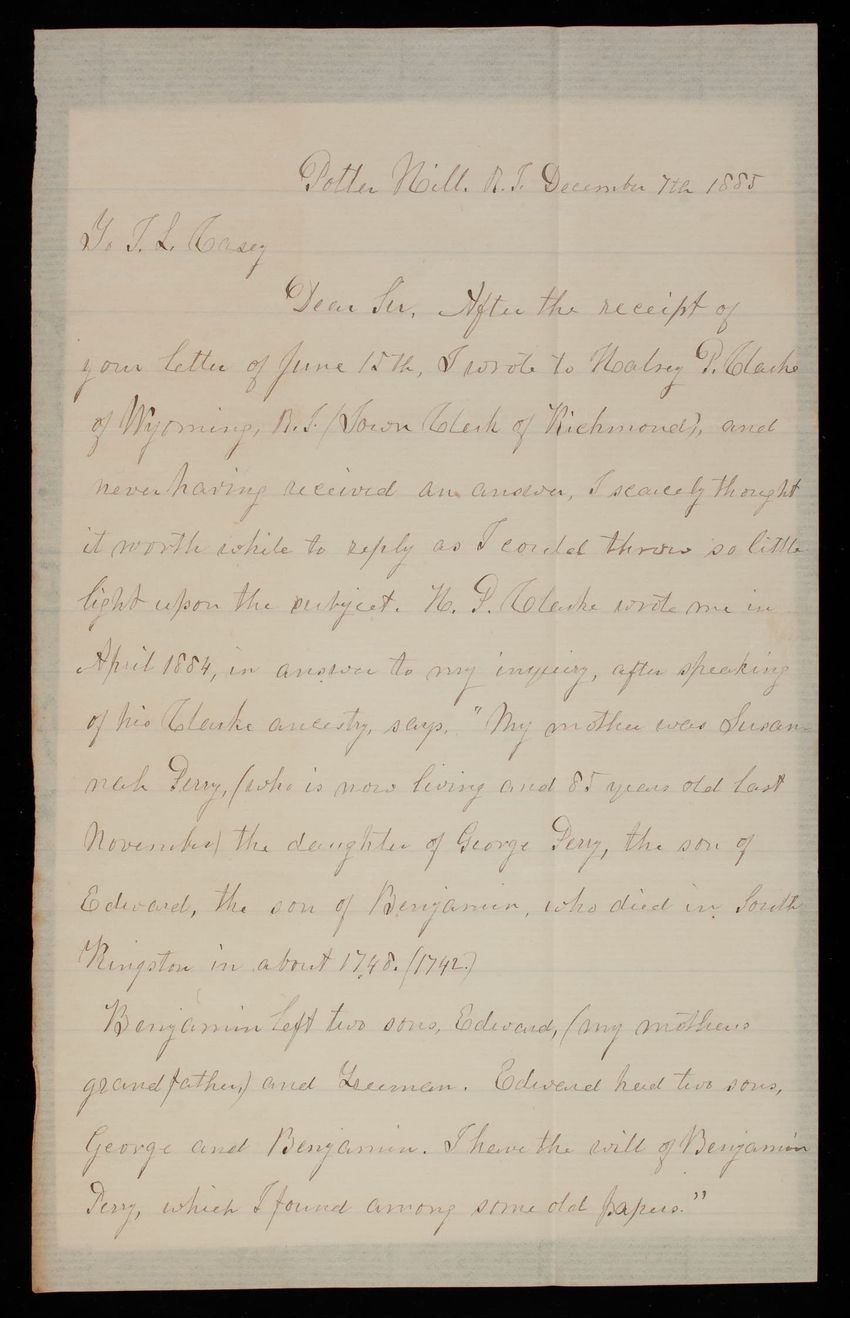 Potter Hill. R.I. December 7th 1885
To T. L. Casey
Dear Sir, After the receipt of
your letter of June 15th, I wrote to Halsey P. Clarke
of Wyoming, R.I. (Town Clerk of Richmond), and
never having received an answer, I scarcely thought
it worth while to reply as I could throw so little
light upon the subject. H. P. Clarke wrote me in
April 1884, in answer to my inquiry, after speaking
of his Clarke ancestry, says, "My mother was Susan-
nah Perry, (who is now living and 85 years old last
November) the daughter of George Perry, the son of
Edward, the son of Benjamin, who died in South
Kingston in about 1748. (1742.)
Benjamin left two sons, Edward, (my mothers
grandfather,) and Freeman. Edward had two sons,
George and Benjamin. I have the will of Benjamin
Perry, which I found among some old papers."